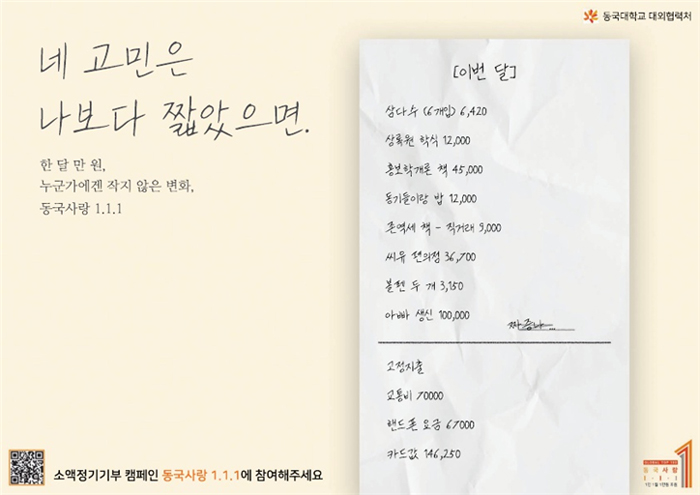 동국대학교 대외협력처
네 고민은
나보다 짧았으면.
한 달 만 원,
누군가에겐 작지 않은 변화,
동국사랑 1.1.1
[이번 달]
삼다수 (6개입) 6,420
상록원 학식 12,000
홍보학개론 책 45,000
동기들이랑 밥 12,000
존역세 책 - 직거래 9,000
씨유 편의점 36,700
볼펜 두 개 3,150
아빠 생신 100,000
짜증나...
고정지출
교통비 70000
핸드폰 요금 67000
카드값 146,250
소액정기기부 캠페인 동국사랑 1.1.1에 참여해주세요
동국사랑
1.1.1